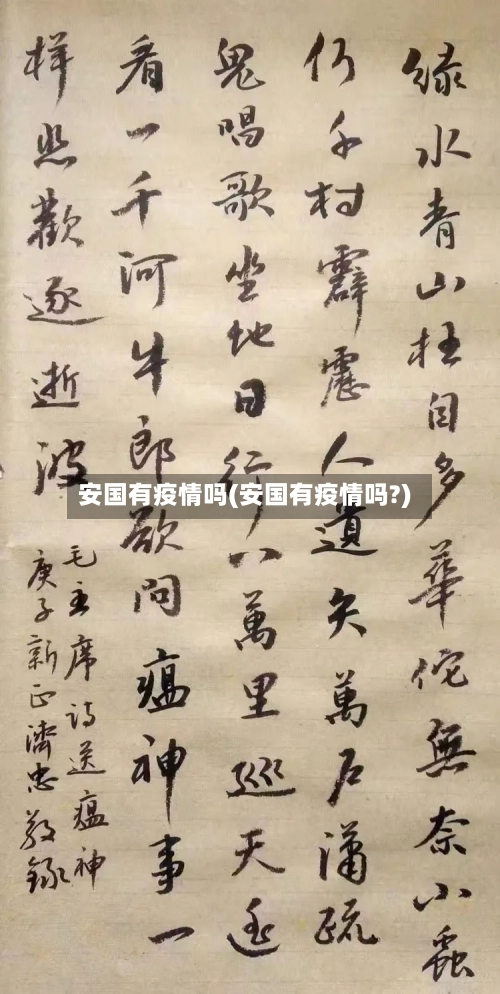 緑水青山枉自多華佗無奈小蟲
何千村霹靂人遺矢萬户瀟疏
鬼唱歌坐地日行八萬里巡天遥
看一千河牛郎欲問瘟神事一
樣悲歡逐逝波
毛主席詩送瘟神
庚子新正濟忠敬錄
安国有疫情吗(安国有疫情吗?)